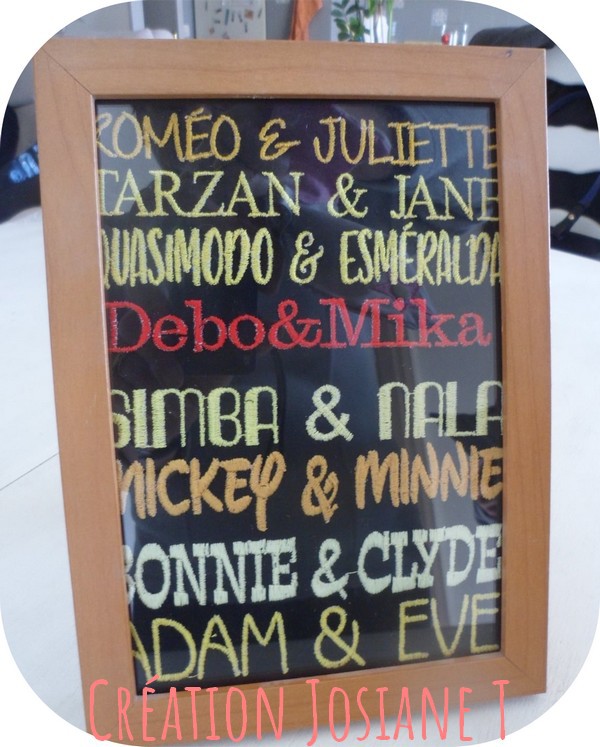 ROMÉO & JULIETTE
TARZAN & JANE
QUASIMODO & ESMÉRALDA
Debo&Mika
SIMBA & NALA
MICKEY & MINNIE
BONNIE & CLYDE
ADAM & EVE
CRÉATION JOSIANE T